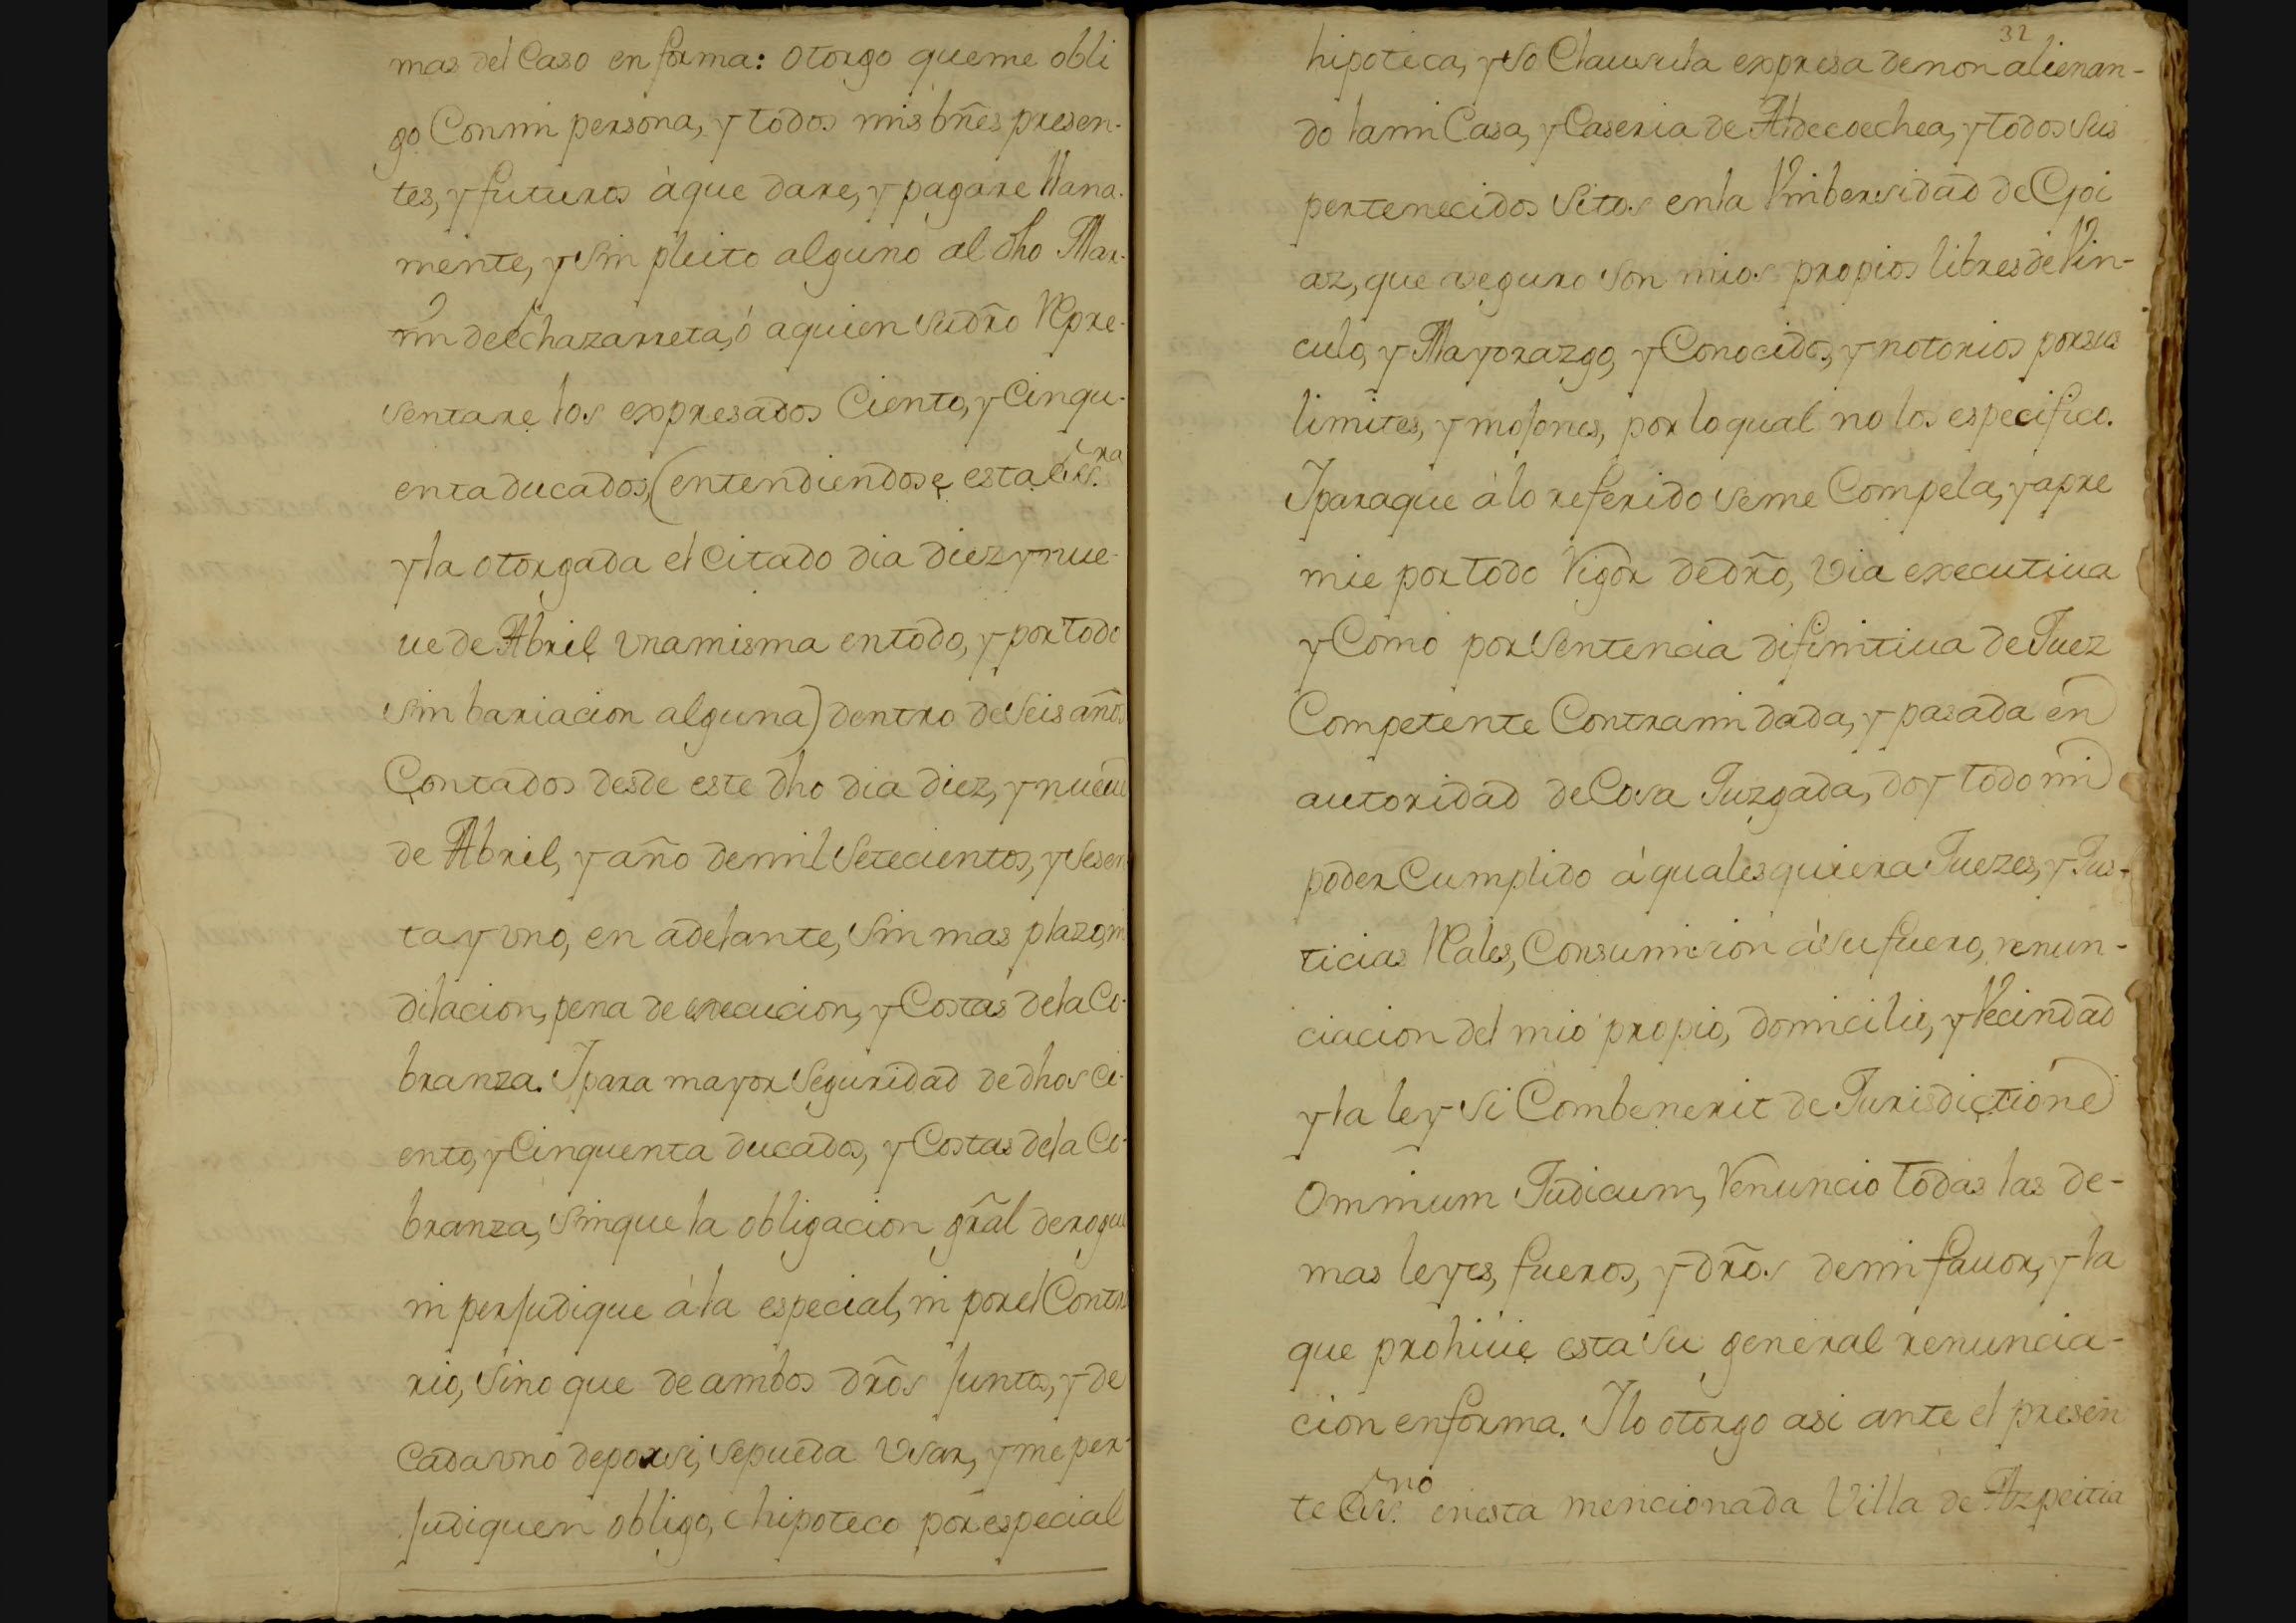 mas del Caso en forma: otorgo queme obli
go Conmi persona, y todos mis bñes presen-
tes, y futuros à que dare, y pagare llana-
mente, y sin pleito alguno al dho Mar-
tin de Echazarreta, ó aquien su dr̃o Repre-
sentare los expresados Ciento, y Cinqu-
enta ducados, (entendiendose esta Ess.ra
y la otorgada el citado dia diez y nue-
ue de Abril vna misma en todo, y por todo
sin bariacion alguna) dentro de seis años
Contados desde este dho dia diez, y nueue
de Abril, y año de mil setecientos, y sesen
ta y vno, en adelante, sin mas plazo, ni
dilacion, pena de execucion, y Costas de la Co-
branza. Y para mayor seguridad de dhos Ci-
ento, y Cinquenta ducados, y Costas de la Co-
branza, sin que la obligacion gr̃al derogue
ni perjudique à la especial, ni por el Contra
rio, sino que de ambos dr̃os juntos, y de
cada vno de por si, se pueda vsar, y me per-
judiquen obligo, e hipoteco por especial
32
hipoteca, y so Clausula expresa de non alienan-
do la mi Casa, y Caseria de Aldecoechea, y todos sus
pertenecidos sitos en la Vnibersidad de Goi
az, que aseguro son mios propios libres de Vin-
culo, y Mayorazgo, y Conocidos, y notorios por sus
limites, y mojones, por lo qual no los especifico.
Y para que à lo referido se me Compela, y apre
mie por todo Vigor de dr̃o, via executiua
y Como por sentencia difinitiua de Juez
Competente Contra mi dada, y pasada en
autoridad de Cosa Juzgada, doy todo mi
poder Cumplido á qualesquiera Juezes, y Jus-
ticias Rales, Consumision à su fuero, renun-
ciacion del mio propio, domicilio, y Vecindad
y la ley si Combenerit de Jurisdictione
omnium Judicum, Renuncio todas las de-
mas leyes, fueros, y dr̃os de mi fauor, y la
que prohiuie esta su general renuncia-
cion en forma. Y lo otorgo asi ante el presen
te Ess.no en esta mencionada Villa de Azpeitia